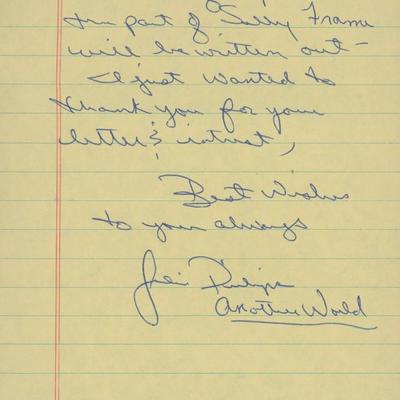 the part of Sally Frame
will be written out —
I just wanted to
thank you for your
letter & interest,
Best Wishes
to you always
Julie Philips
Another World